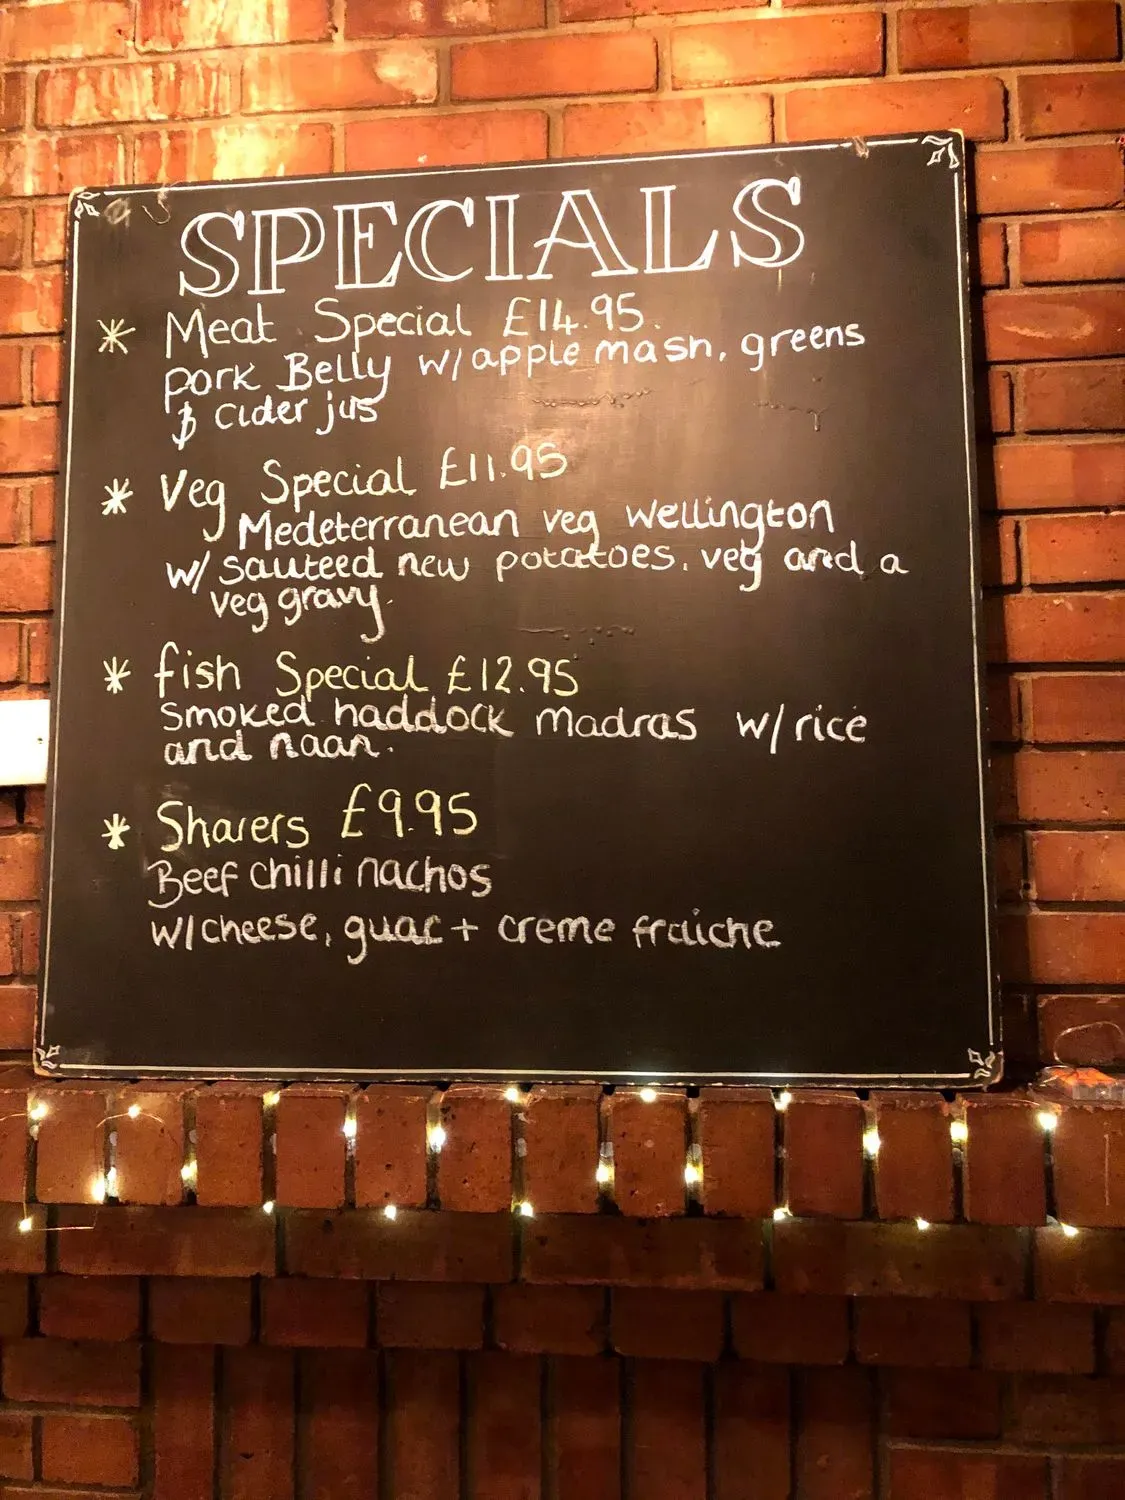 SPECIALS
* Meat Special £14.95.
pork Belly w/ apple mash, greens
& cider jus
* Veg Special £11.95
Medeterranean veg wellington
w/ sauteed new potatoes, veg and a
veg gravy.
* fish Special £12.95
smoked haddock madras w/ rice
and naan.
* Sharers £9.95
Beef chilli nachos
w/cheese, guac + creme fraiche